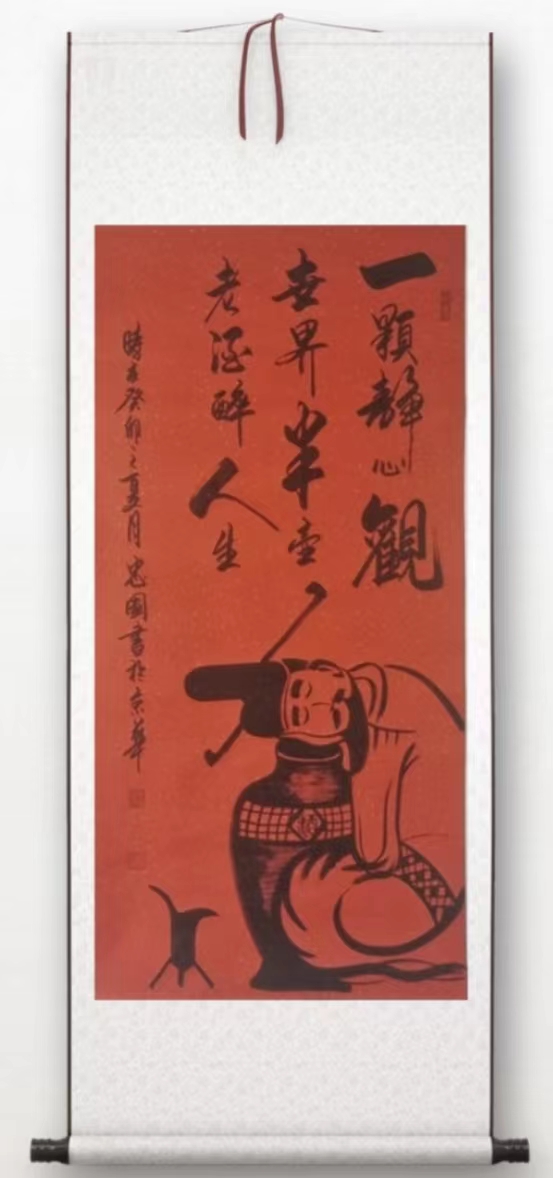 一顆靜心觀
世界半壺
老酒醉人生
時在癸卯之夏月忠國書於京華